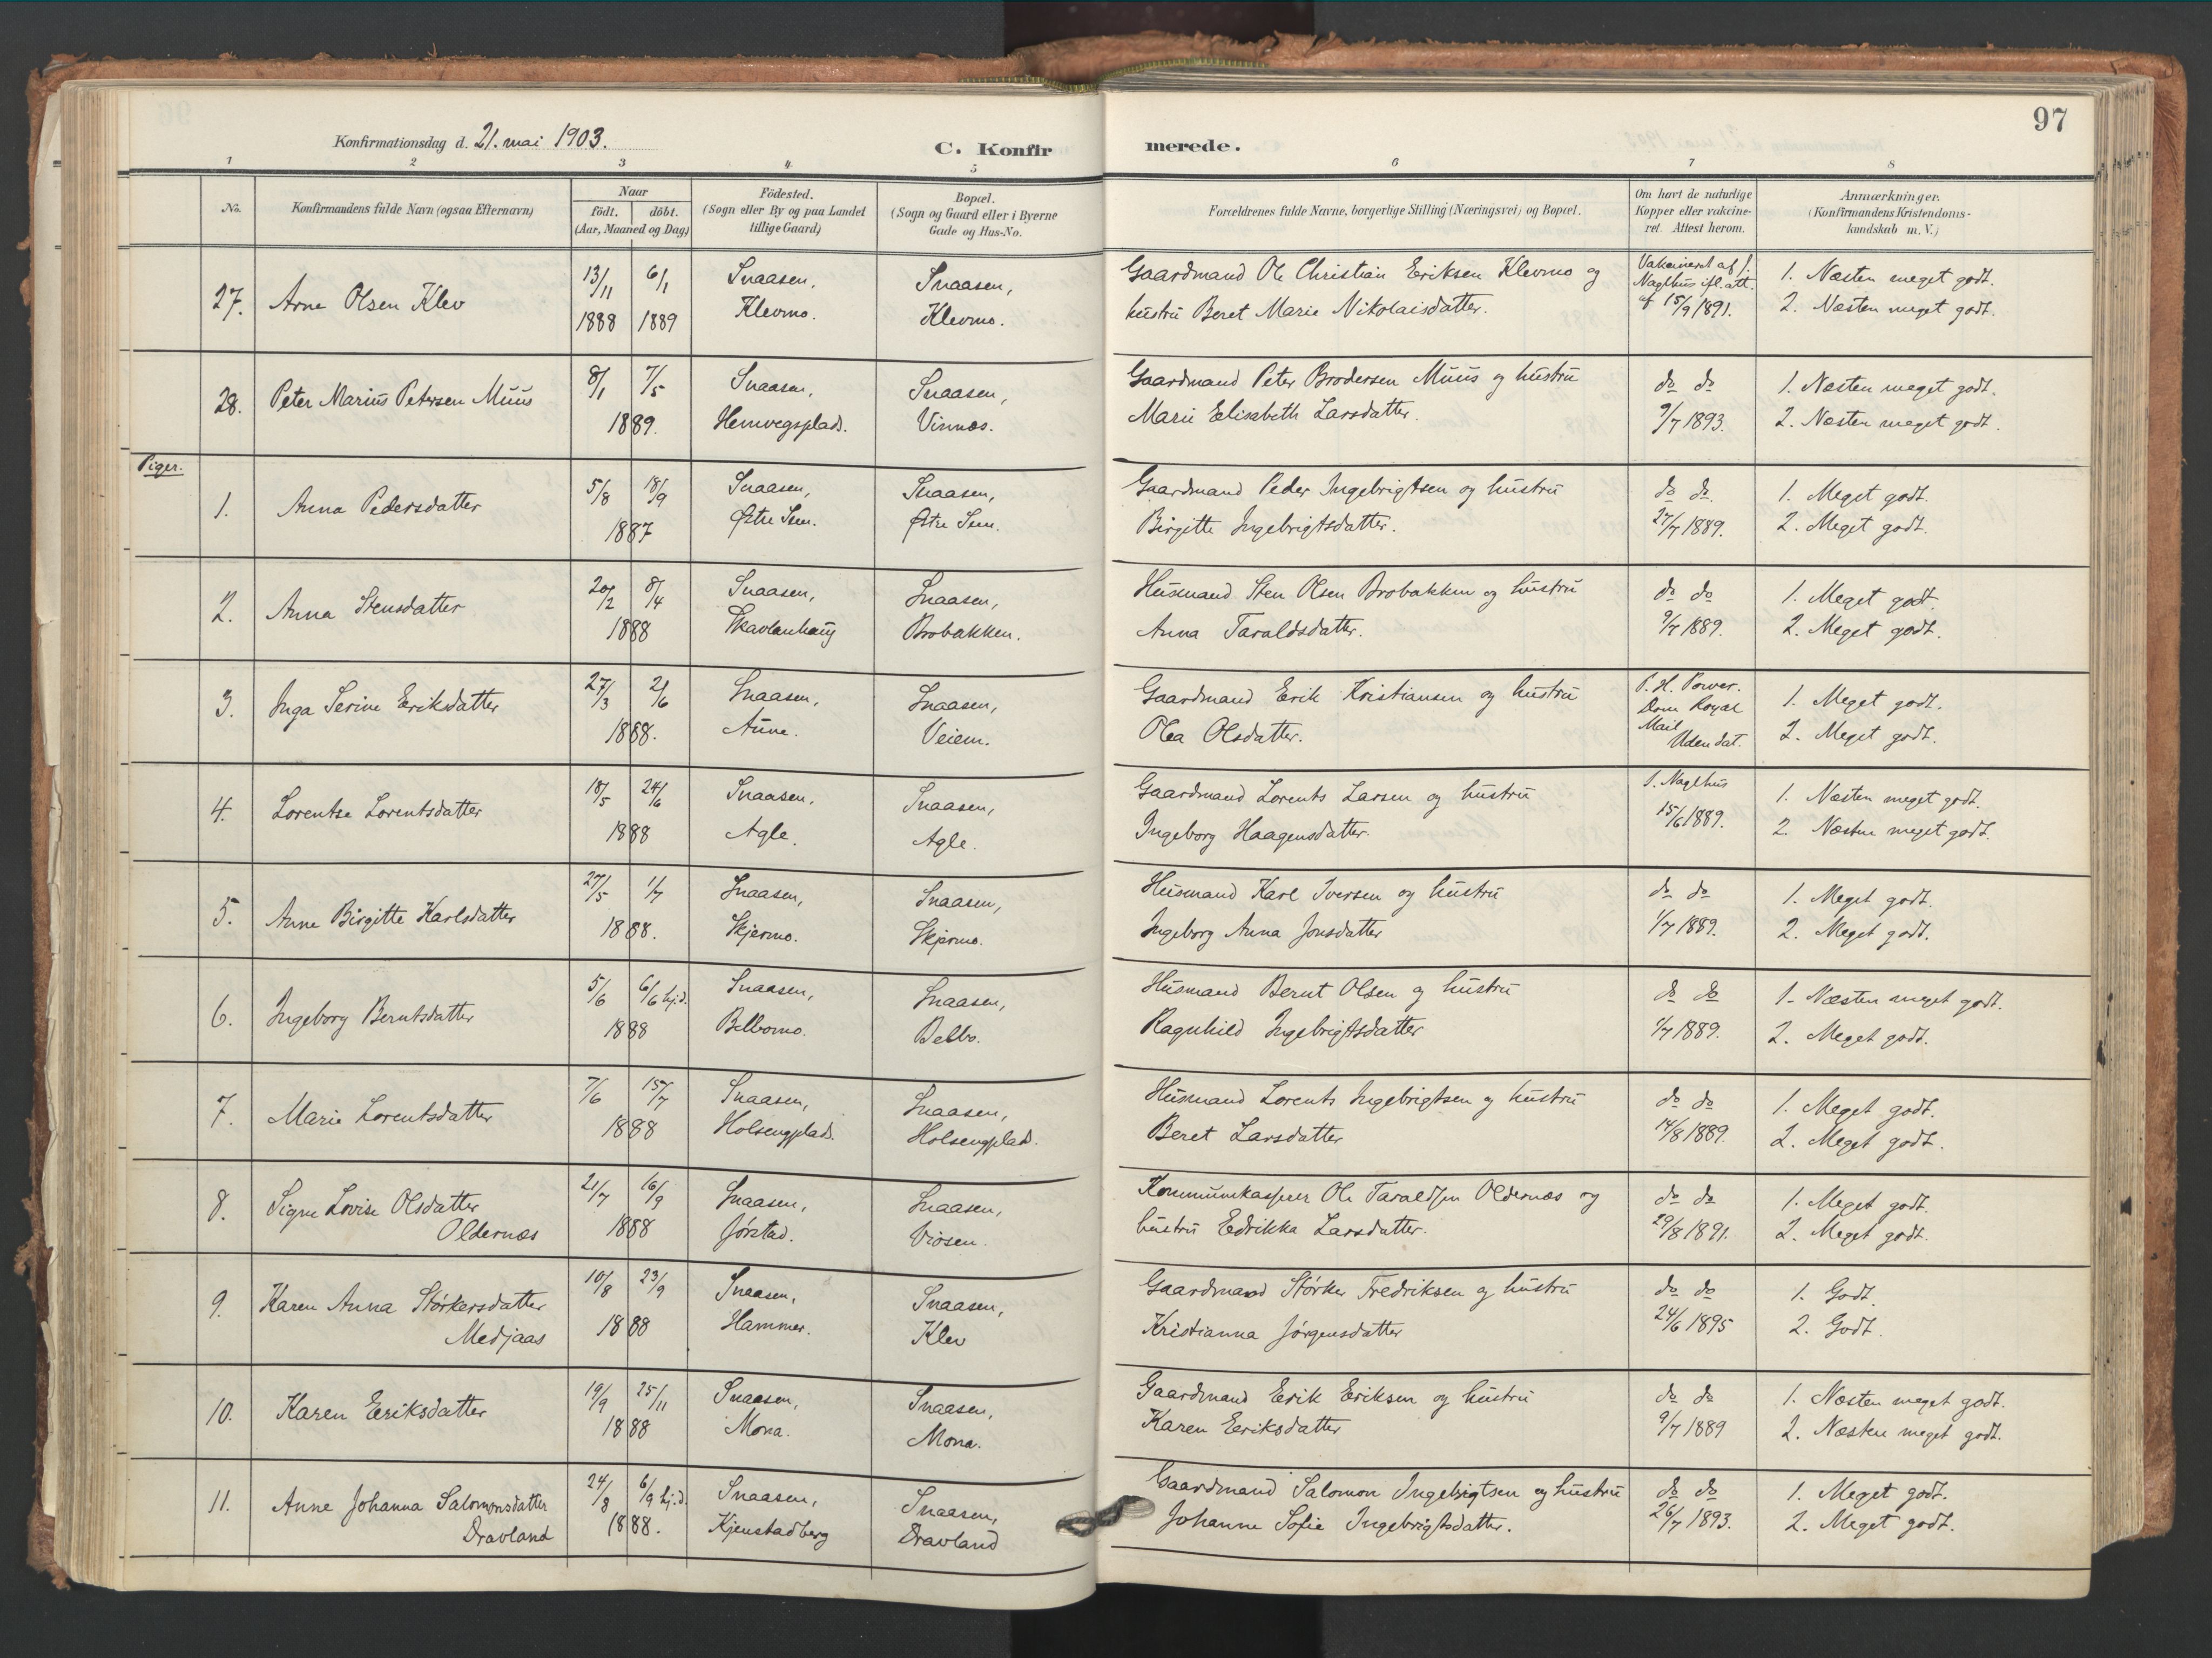 97
Konfirmationsdag d. 21. mai 1903.
C. Konfirmerede.
1 2 3 4 5 6 7 8
No.
Konfirmandens fulde Navn (ogsaa Efternavn)
Naar
födt. döbt.
(Aar, Maaned og Dag)
Födested.
(Sogn eller By og paa Landet
tillige Gaard)
Bopæl.
(Sogn og Gaard eller i Byerne
Gade og Hus-No.
Forældrenes fulde Navne, borgerlige Stilling (Næringsvei) og Bopæl.
Om havt de naturlige
Kopper eller vakcine-
ret. Attest herom.
Anmærkninger.
(Konfirmandens Kristendoms-
kundskab m. V.)
27. Arne Olsen Klev
13/11 1888
6/1 1889
Snaasen,
Klevmo.
Snaasen,
Klevmo.
Gaardmand Ole Christian Eriksen Klevmo og
hustru Beret Marie Nikolaisdatter.
Vakcineret af J.
Naglhus ifl. att.
af 15/9 1891.
1. Næsten meget godt.
2. Næsten meget godt.
28. Peter Marius Petersen Muus
8/1 7/5
1889.
Snaasen,
Hemvegsplads.
Snaasen,
Vinnæs.
Gaardmand Peter Brodersen Muus og hustru
Marie Elisabeth Larsdatter.
do do
9/7 1893.
1. Næsten meget godt.
2. Næsten meget godt.
Piger.
1. Anna Pedersdatter
5/8 18/9
1887
Snaasen,
Østre Sem.
Snaasen,
Østre Sem.
Gaardmand Peder Ingebrigtsen og hustru
Birgitte Ingebrigtsdatter.
do do.
27/7 1889.
1. Meget godt.
2. Meget godt.
2. Anna Stensdatter
20/2 8/4
1888
Snaasen,
Skavlanhaug
Snaasen,
Brobakken.
Husmand Sten Olsen Brobakken og hustru
Anna Taraldsdatter.
do do
9/7 1889.
1. Meget godt.
2. Meget godt.
3. Inga Serine Eriksdatter
27/3 2/6
1888.
Snaasen,
Aune.
Snaasen,
Veiem.
Gaardmand Erik Kristiansen og hustru
Olea Olsdatter.
P. H. Power.
Dom Royal
Mail
Uden dat.
1. Meget godt.
2. Meget godt.
4. Lorentse Lorentsdatter
18/5 24/6
1888
Snaasen,
Agle.
Snaasen,
Agle.
Gaardmand Lorents Larsen og hustru
Ingeborg Haagensdatter.
J. Naglhus
15/6 1889.
1. Næsten meget godt.
2. Næsten meget godt.
5. Anne Birgitte Karlsdatter
27/5 1/7
1888.
Snaasen,
Skjermo.
Snaasen,
Skjermo.
Husmand Karl Iversen og hustru
Ingeborg Anna Jonsdatter
do do
1/7 1889.
1. Meget godt.
2. Meget godt.
6. Ingeborg Berntsdatter
5/6 6/6 hj.d.
1888
Snaasen,
Belbomo.
Snaasen,
Belbo.
Husmand Bernt Olsen og hustru
Ragnhild Ingebrigtsdatter
do do
1/7 1889.
1. Næsten meget godt.
2. Meget godt.
7. Marie Lorentsdatter
7/6 15/7
1888
Snaasen,
Holsengplad.
Snaasen,
Holsengplad.
Husmand Lorents Ingebrigtsen og hustru
Beret Larsdatter
do do
14/8 1889.
1. Meget godt.
2. Meget godt.
8. Signe Lovise Olsdatter
Oldernæs
21/7 16/9
1888
Snaasen,
Jørstad.
Snaasen,
Viosen.
Kommunekasserer Ole Taraldsen Oldernæs og
hustru Edrikka Larsdatter.
do do
29/8 1891.
1. Meget godt.
2. Meget godt.
9. Karen Anna Størkersdatter
Medjaas
10/8 23/9
1888
Snaasen,
Hammer.
Snaasen,
Klev
Gaardmand Størker Fredriksen og hustru
Kristianna Jørgensdatter
do do
24/6 1895
1. Godt.
2. Godt.
10. Karen Eriksdatter
19/9 25/11
1888
Snaasen,
Mona.
Snaasen,
Mona.
Gaardmand Erik Eriksen og hustru
Karen Eriksdatter
do do
9/7 1889
1. Næsten meget godt.
2. Næsten meget godt.
11. Anne Johanna Salomonsdatter
Dravland
24/8 6/9 hj.d.
1888.
Snaasen,
Kjenstadberg
Snaasen,
Dravland
Gaardmand Salomon Ingebrigtsen og hustru
Johanne Sofie Ingebrigtsdatter.
do do
26/7 1893.
1. Meget godt.
2. Meget godt.